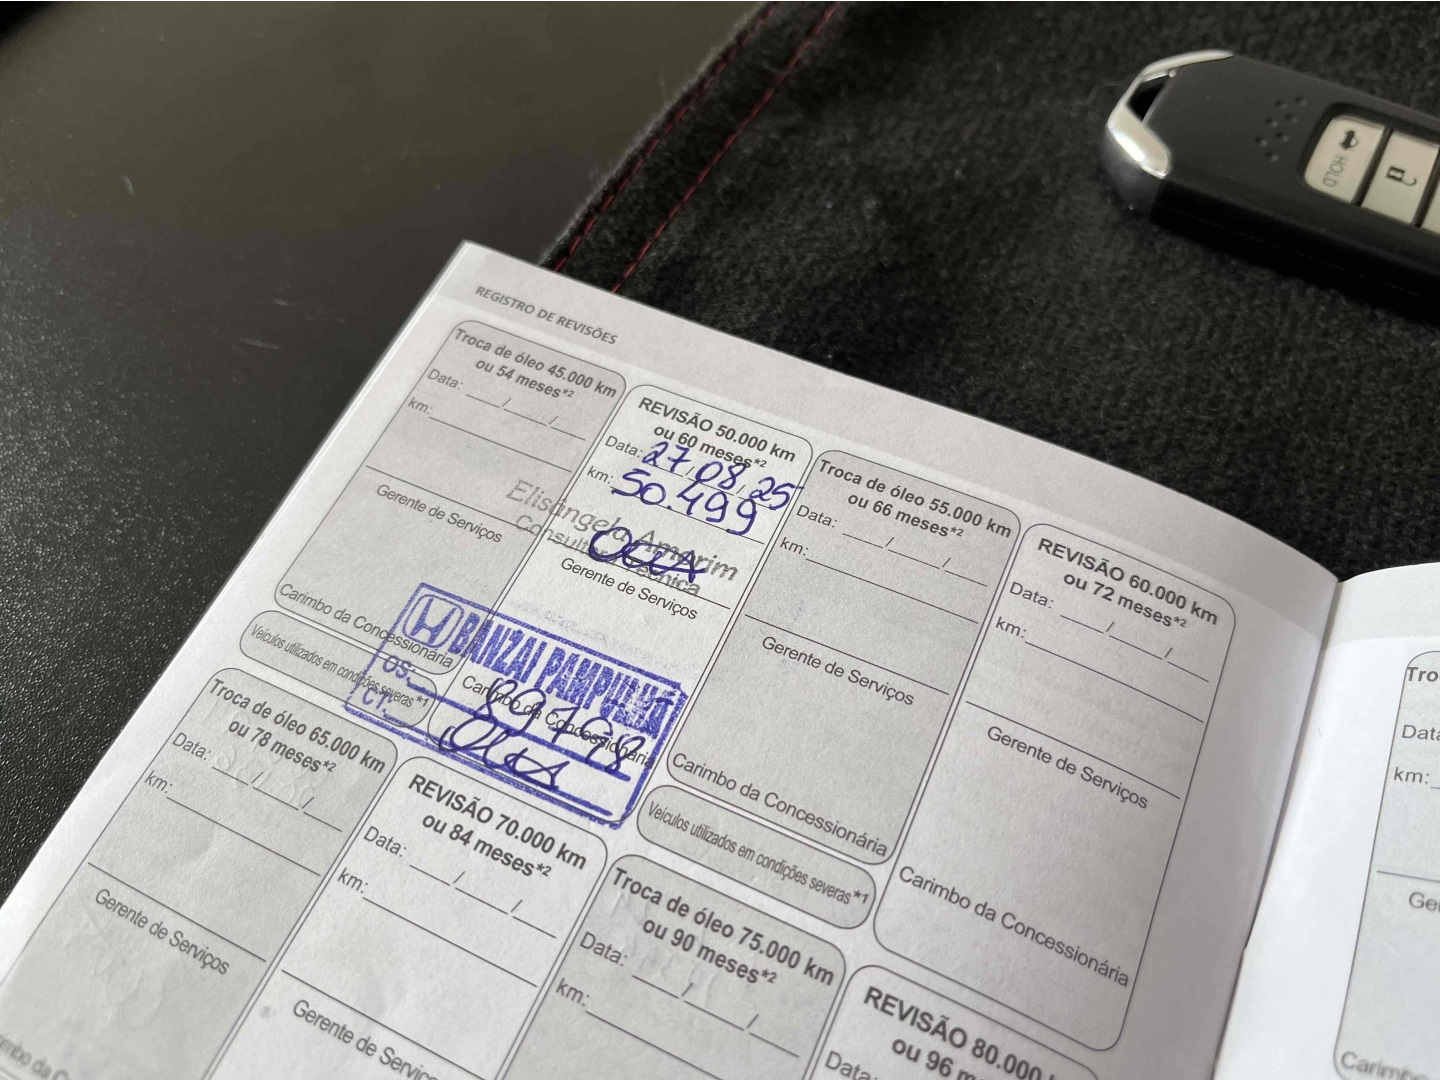 REGISTRO DE REVISÕES
Troca de óleo 45.000 km
ou 54 meses*2
Data: __/__/__
km:
Gerente de Serviços
Carimbo da Concessionária
Veículos utilizados em condições severas*1
REVISÃO 50.000 km
ou 60 meses*2
Data: 27/08/25
km: 50.499
Elisângela Amorim
Consultora Técnica
Gerente de Serviços
BANZAI PAMPULHA
OS:
CT:
Carimbo da Concessionária
Troca de óleo 55.000 km
ou 66 meses*2
Data: __/__/__
km:
Gerente de Serviços
Carimbo da Concessionária
Veículos utilizados em condições severas*1
REVISÃO 60.000 km
ou 72 meses*2
Data: __/__/__
km:
Gerente de Serviços
Carimbo da Concessionária
Troca de óleo 65.000 km
ou 78 meses*2
Data: __/__/__
km:
Gerente de Serviços
REVISÃO 70.000 km
ou 84 meses*2
Data: __/__/__
km:
Gerente de Serviços
Troca de óleo 75.000 km
ou 90 meses*2
Data: __/__/__
km:
REVISÃO 80.000
ou 96 m
Data:
Tro
Data
km:
Ge
Carimbo
HOLD